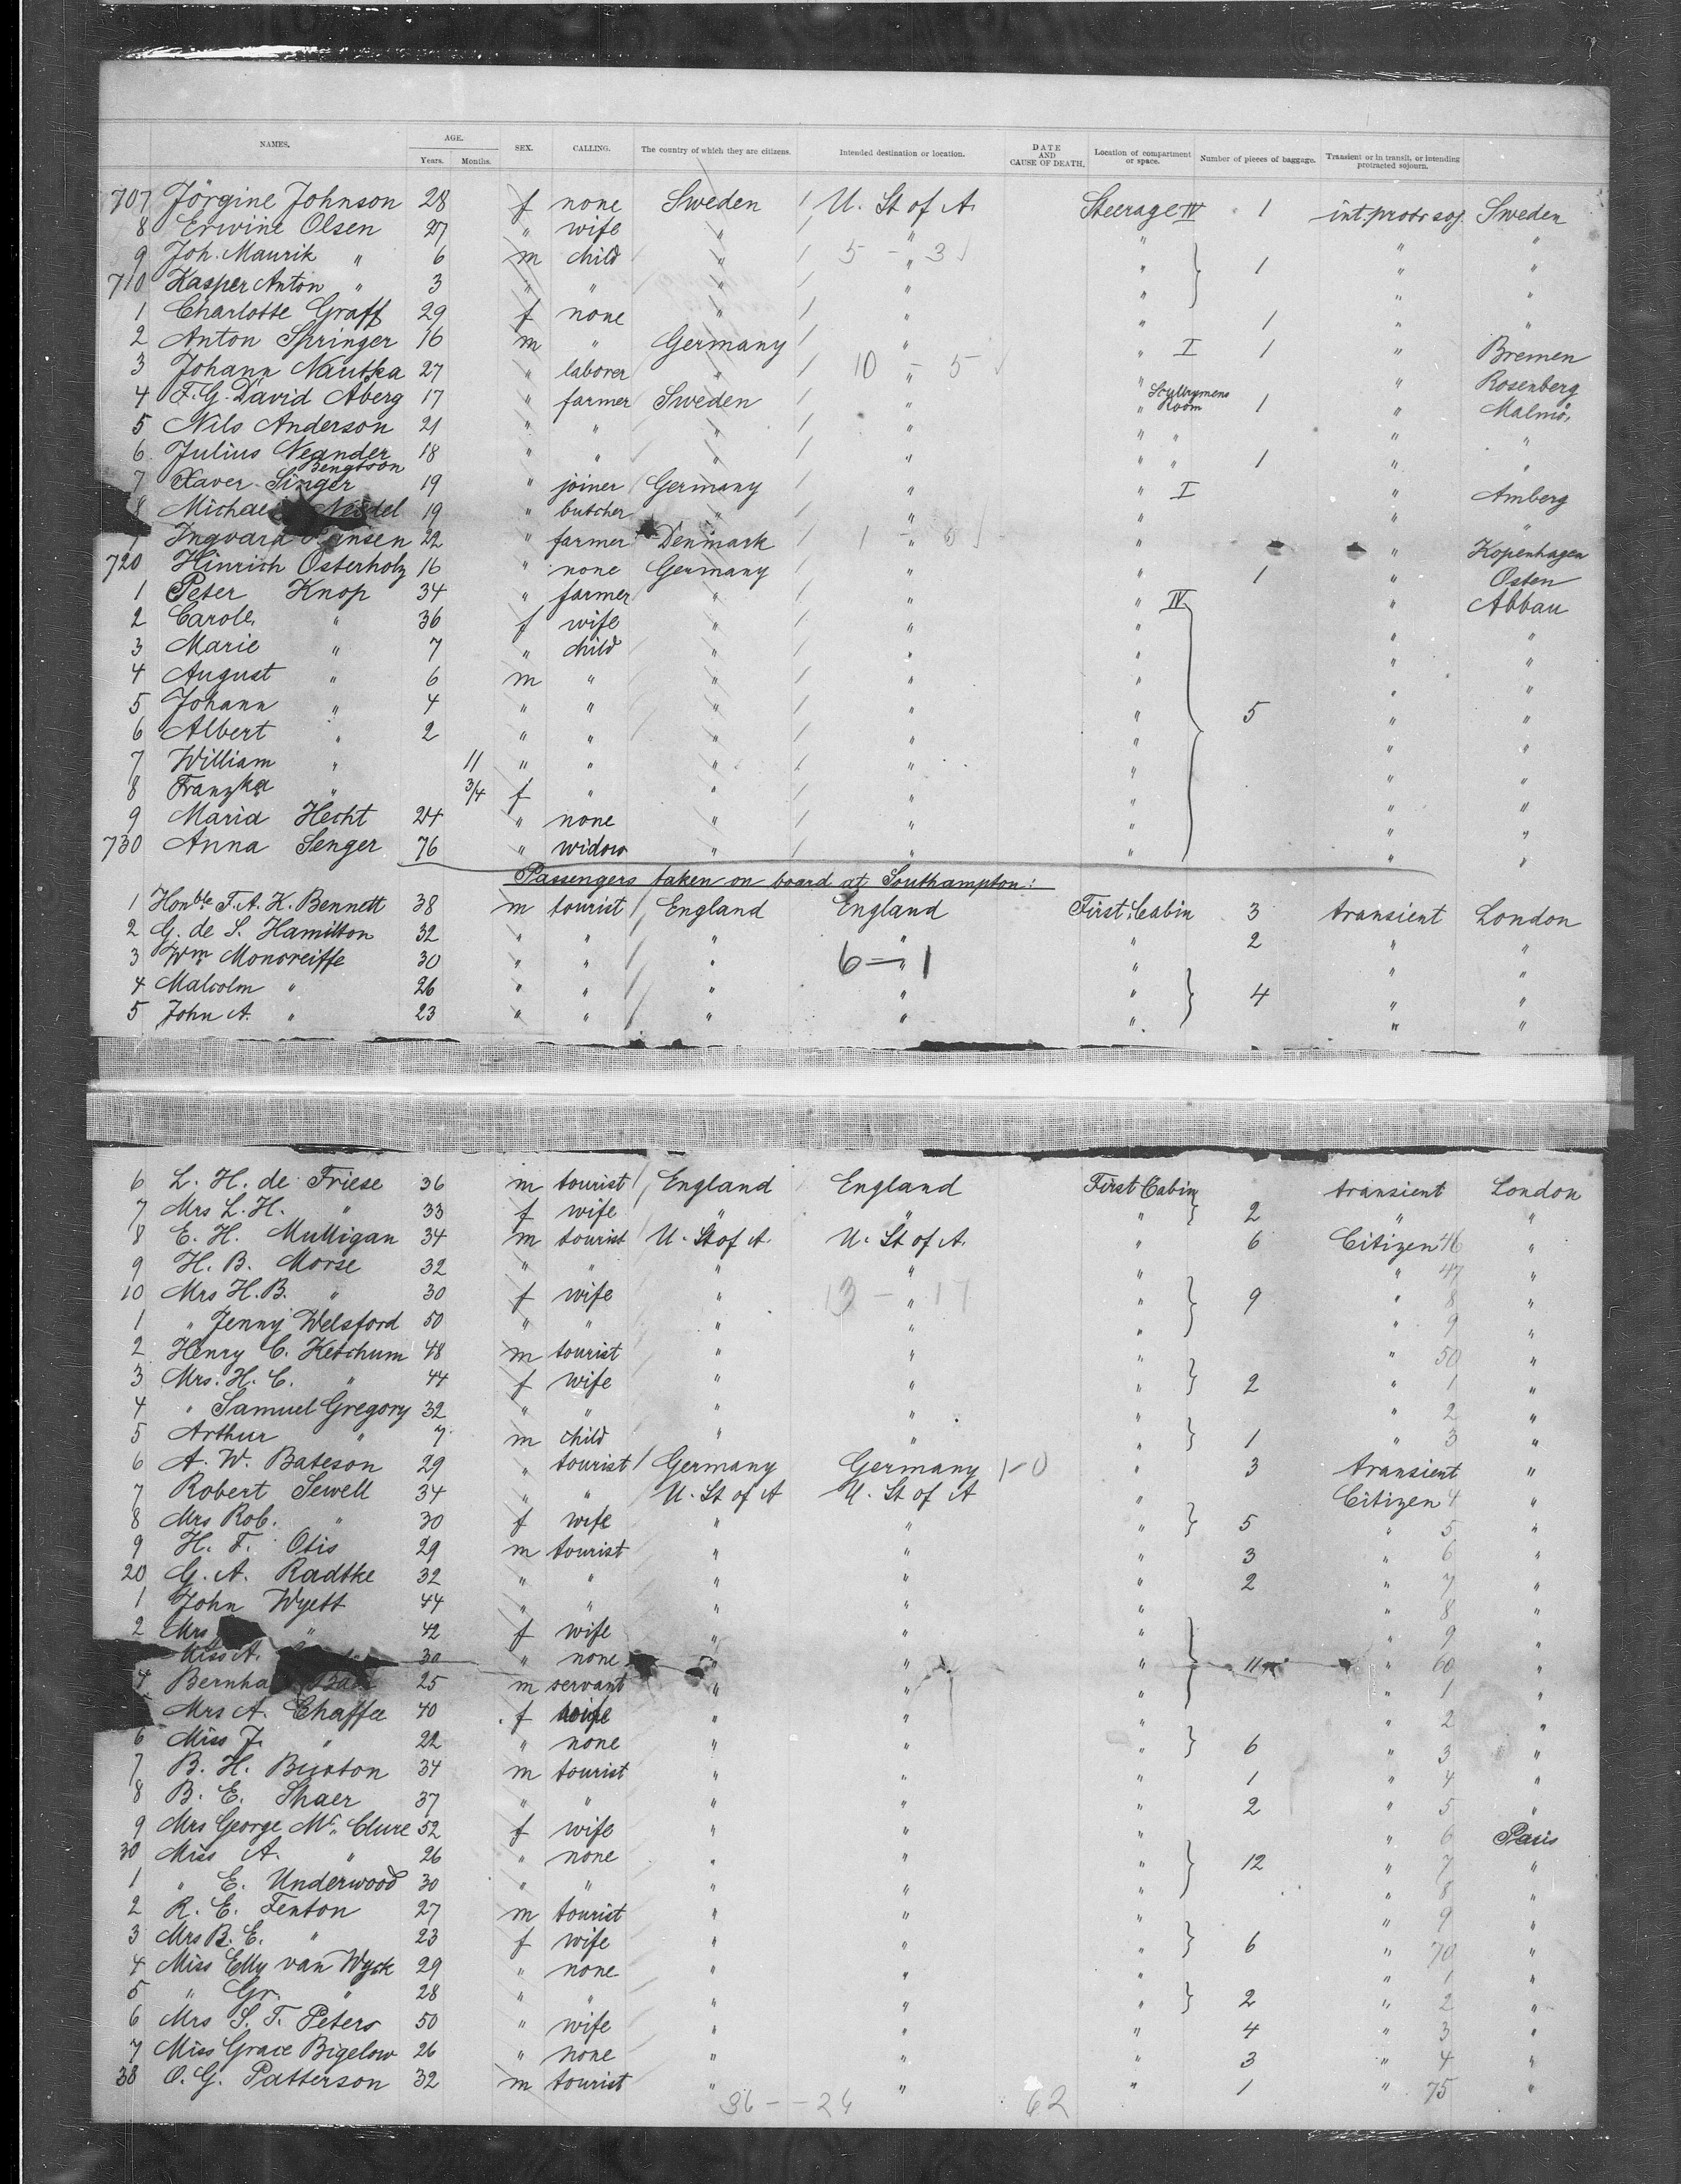 NAMES. AGE. Years. Months. SEX. CALLING. The country of which they are citizens. Intended destination or location. DATE AND CAUSE OF DEATH. Location of compartment or space. Number of pieces of baggage. Transient or in transit, or intending protracted sojourn.
707 Jörgine Johnson 28 f none Sweden / U. St of A. Steerage IV 1 int. protr soj. Sweden
8 Erwine Olsen 27 " wife " / " " " "
9 Joh. Maurik " 6 m child " / 5 - " 3 " 1 " "
710 Kasper Anton " 3 " " " / " " " "
1 Charlotte Graff 29 f none " / " " 1 " "
2 Anton Springer 16 m " Germany / " " I 1 " Bremen
3 Johann 27 " laborer " / 10 - " 5 " " Rosenberg
4 F. G. David Åberg 17 " farmer Sweden / " " Room 1 " Malmö,
5 Nils Anderson 21 " " " / " " " " "
6 Julius Neander 18 " " " / " " " 1 " "
Bengtson
7 Xaver Singer 19 " joiner Germany / " " I " Amberg
8 Michael 19 " butcher " / " " " "
Ingvard 22 " farmer Denmark / 1 - " 0 " " Kopenhagen
720 Hinrich Osterholz 16 " none Germany / " " 1 " Osten
1 Peter Knop 34 " farmer " / " " IV " Abbau
2 Carole " 36 f wife " / " " " "
3 Marie " 7 " child " / " " " "
4 August " 6 m " " / " " " "
5 Johann " 4 " " " / " " 5 " "
6 Albert " 2 " " " / " " " "
7 William " 11 " " " / " " " "
8 Franzka " 3/4 f " " / " " " "
9 Maria Hecht 24 " none " / " " " "
730 Anna Senger 76 " widow " / " " " "
Passengers taken on board at Southampton:
1 Honble F. A. K. Bennett 38 m tourist / England England First Cabin 3 transient London
2 G. de S. Hamilton 32 " " / " " " 2 " "
3 Wm Moncreiffe 30 " " / " 6 - " 1 " " "
4 Malcolm " 26 " " / " " " 4 " "
5 John A. " 23 " " / " " " " "
6 L. H. de Friese 36 m tourist / England England First Cabin transient London
7 Mrs L. H. " 33 f wife / " " " 2 " "
8 E. H. Mulligan 34 m tourist U. St of A. U. St of A. " 6 Citizen 46 "
9 H. B. Morse 32 " " " " " 47 "
10 Mrs H. B. " 30 f wife " 13 - " 17 " 9 " 8 "
1 " Jenny Welsford 50 " " " " " " 9 "
2 Henry C. Ketchum 48 m tourist " " " " 50 "
3 Mrs. H. C. " 44 f wife " " " 2 " 1 "
4 " Samuel Gregory 32 " " " " " 2 "
5 Arthur " 7 m child " " " 1 " 3 "
6 A. W. Bateson 29 " tourist / Germany Germany 1-0 " 3 transient "
7 Robert Sewell 34 " " U. St of A U. St of A " Citizen 4 "
8 Mrs Rob. " 30 f wife " " " 5 " 5 "
9 H. F. Otis 29 m tourist " " " 3 " 6 "
20 G. A. Radtke 32 " " " " " 2 " 7 "
1 John Wyett 44 " " " " " " 8 "
2 Mrs " 42 f wife " " " " 9 "
Miss A. 30 " none " " " 11 " 60 "
4 25 m servant " " " " 1 "
Mrs A. Chaffee 40 f wife " " " " 2 "
6 Miss J. " 22 " none " " " 6 " 3 "
7 B. H. Buxton 34 m tourist " " " 1 " 4 "
8 B. E. Shaer 37 " " " " " 2 " 5 "
9 Mrs George Mc Clure 52 f wife " " " " 6 Paris
30 Miss A. " 26 " none " " " 12 " 7 "
1 " E. Underwood 30 " " " " " " 8 "
2 R. E. Fenton 27 m tourist " " " " 9 "
3 Mrs B. E. " 23 f wife " " " 6 " 70 "
4 Miss Elly van Wyck 29 " none " " " " 1 "
5 " Gr. " 28 " " " " " 2 " 2 "
6 Mrs S. T. Peters 50 " wife " " " 4 " 3 "
7 Miss Grace Bigelow 26 " none " " " 3 " 4 "
38 O. G. Patterson 32 m tourist " " " 1 " 75 "
36 - - 24 62